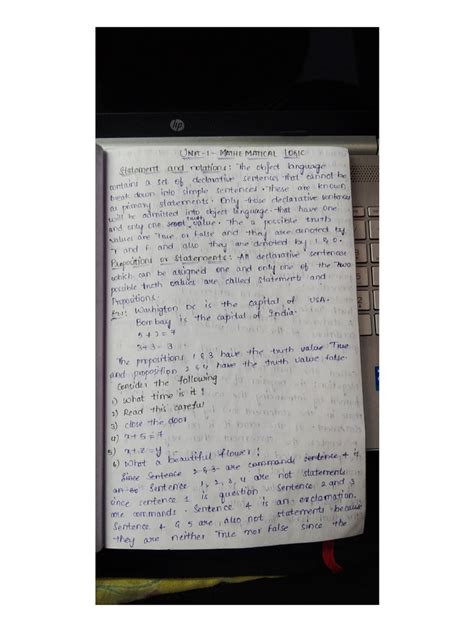 hp
UNIT-1- MATHEMATICAL LOGIC
Statement and notations: The object language
contains a set of declarative sentences that cannot be
break down into simple sentences. These are known
as primary statements. Only those declarative sentences
will be admitted into object language that have one
and only one truth value. The 2 possible truth
values are True or False and they are denoted by
T and F and also they are denoted by 1 & 0.
Proposition or Statements: All declarative sentences
which can be assigned one and only one of the two
possible truth values are called statements and
Propositions.
Ex: Washigton DC is the capital of USA.
Bombay is the capital of India.
5+3=
The propositions 1 & 3 have the truth value True
and proposition 2 & 4 have the truth value false.
Consider the following
1) What time is it?
2) Read this careful
3) close the door
4) x+5=7
5) x+z=y
6) What a beautiful flower!
Since Sentence 2 & 3 are commands sentence 4 is
Sentence 1, 2, 3, 4 are not statements
since centence 1 is question Sentence 2 and 3
are commands. Sentence 4 is an explamation.
Sentence 4 & 5 are also not statements because
they are neither True nor False since the